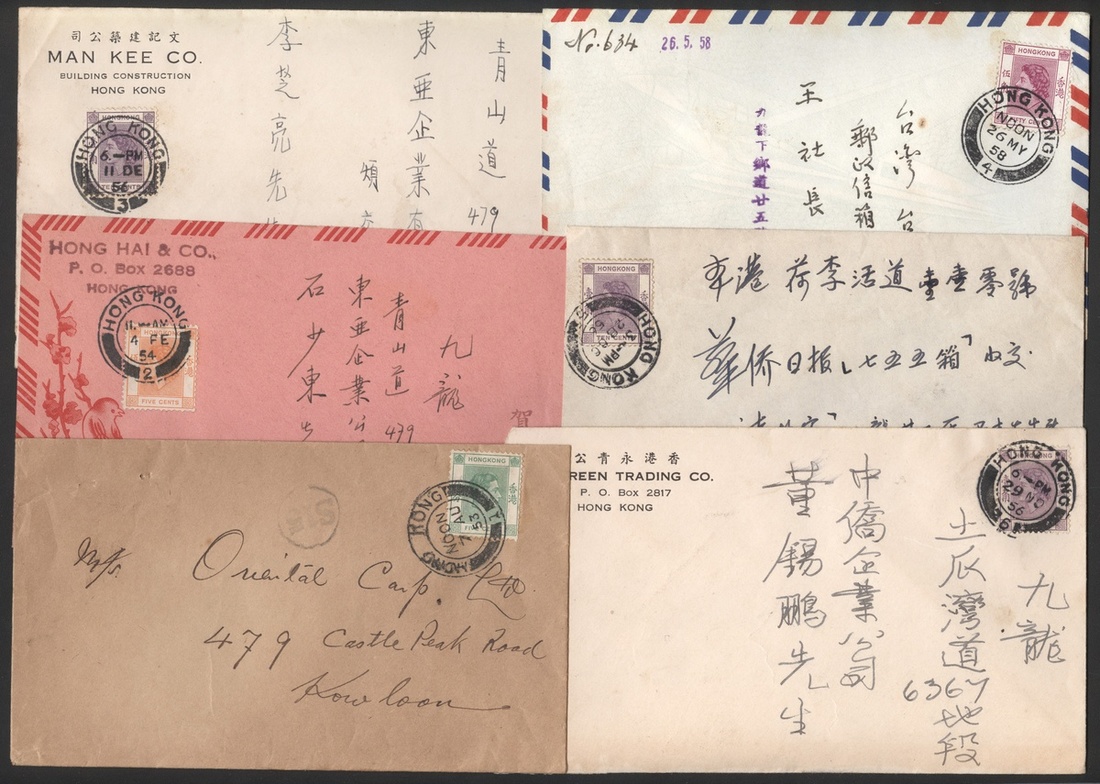 司公築建記文
MAN KEE CO.
BUILDING CONSTRUCTION
HONG KONG
HONGKONG
TEN CENTS
HONG KONG
6.—PM
11 DE
56
3
青山道 479
東亜企業有
頌
李芝亮先生
No. 634
26.5.58
HONGKONG
香港
HONG KONG
NOON
26 MY
58
4
台灣 台
郵政信箱
王社長
九龍下鄉道廿五
HONG HAI & CO.,
P. O. Box 2688
HONG KONG
HONG KONG
11.—AM
4 FE
54
2
FIVE CENTS
九龍
青山道 479
東亜企業公
石少東
賀
HONGKONG
香港
TEN CENTS
HONG KONG
本港荷李活道壹壹零號
華僑日报「七五五箱」收交
HONGKONG
香港
HONG KONG
NOON
AU
53
M/s.
Oriental Corp. Ltd.
479 Castle Peak Road
Kowloon
公青永港香
REEN TRADING CO.
P. O. Box 2817
HONG KONG
HONG KONG
6.—PM
29 NO
56
九龍
土瓜灣道 6367 地段
中僑企業公司
董錫鵬先生